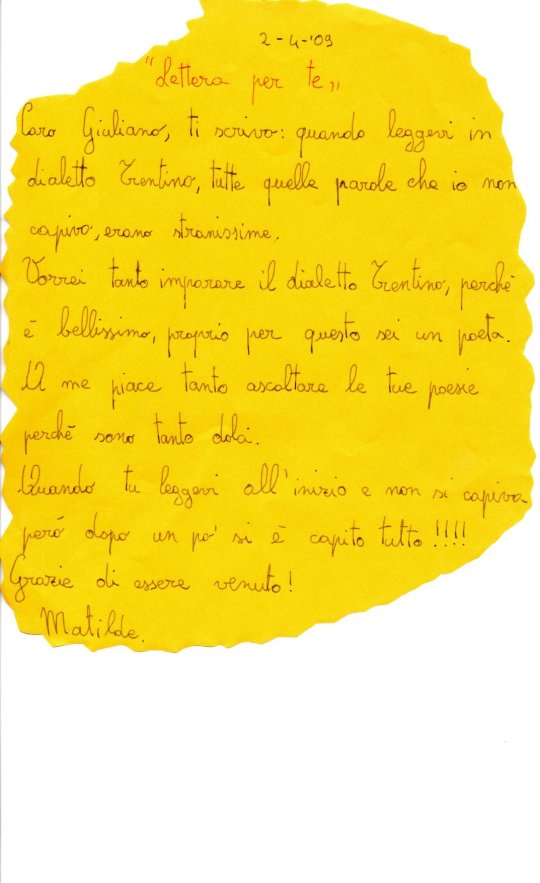 2-4-'09
"Lettera per te„
Caro Giuliano, ti scrivo: quando leggevi in
dialetto Trentino, tutte quelle parole che io non
capivo, erano stranissime.
Vorrei tanto imparare il dialetto Trentino, perchè
è bellissimo, proprio per questo sei un poeta.
A me piace tanto ascoltare le tue poesie
perchè sono tanto dolci.
Quando tu leggevi all'inizio e non si capiva
però dopo un po' si è capito tutto!!!!
Grazie di essere venuto!
Matilde.